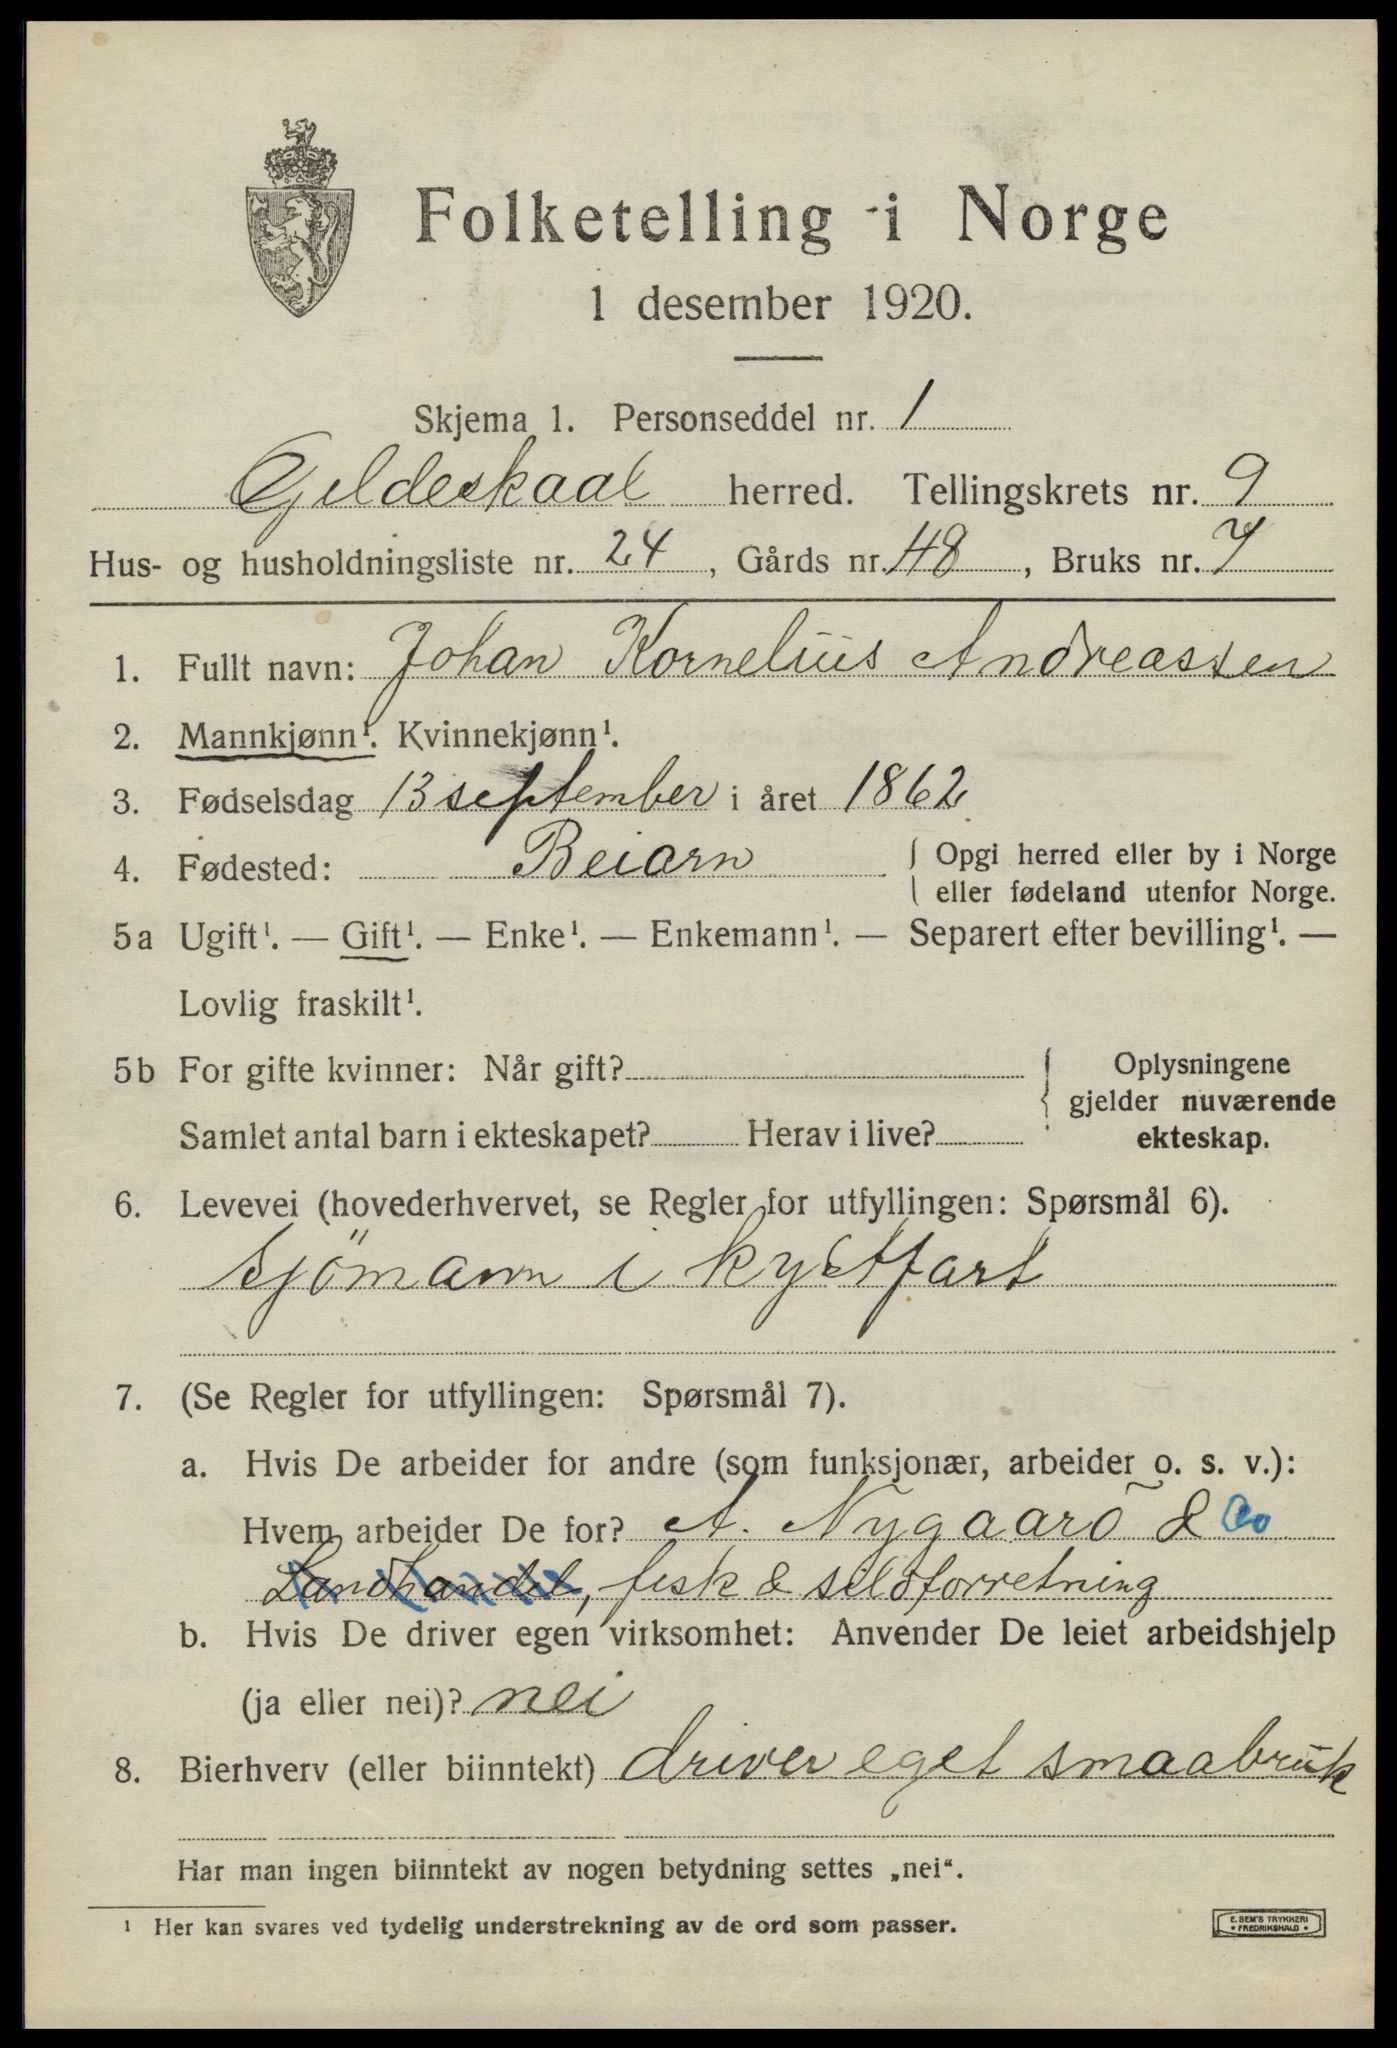 Folketelling i Norge
1 desember 1920.
Skjema 1. Personseddel nr. 1
Gildeskaal herred. Tellingskrets nr. 9
Hus- og husholdningsliste nr. 24, Gårds nr. 48, Bruks nr. 7
1. Fullt navn: Johan Kornelius Andreassen
2. Mannkjønn¹. Kvinnekjønn¹.
3. Fødselsdag 13 september i året 1862
4. Fødested: Beiarn { Opgi herred eller by i Norge
eller fødeland utenfor Norge.
5a Ugift¹. — Gift¹. — Enke¹. — Enkemann¹. — Separert efter bevilling¹. —
Lovlig fraskilt¹.
5b For gifte kvinner: Når gift? { Oplysningene
gjelder nuværende
Samlet antal barn i ekteskapet? Herav i live? ekteskap.
6. Levevei (hovederhvervet, se Regler for utfyllingen: Spørsmål 6).
Sjömann i kystfart
7. (Se Regler for utfyllingen: Spørsmål 7).
a. Hvis De arbeider for andre (som funksjonær, arbeider o. s. v.):
Hvem arbeider De for? A. Nygaard & Co
Landhandel, fisk & sildforretning
b. Hvis De driver egen virksomhet: Anvender De leiet arbeidshjelp
(ja eller nei)? nei
8. Bierhverv (eller biinntekt) driver eget smaabruk
Har man ingen biinntekt av nogen betydning settes „nei“.
¹ Her kan svares ved tydelig understrekning av de ord som passer.
E. SEM'S TRYKKERI
• FREDRIKSHALD •